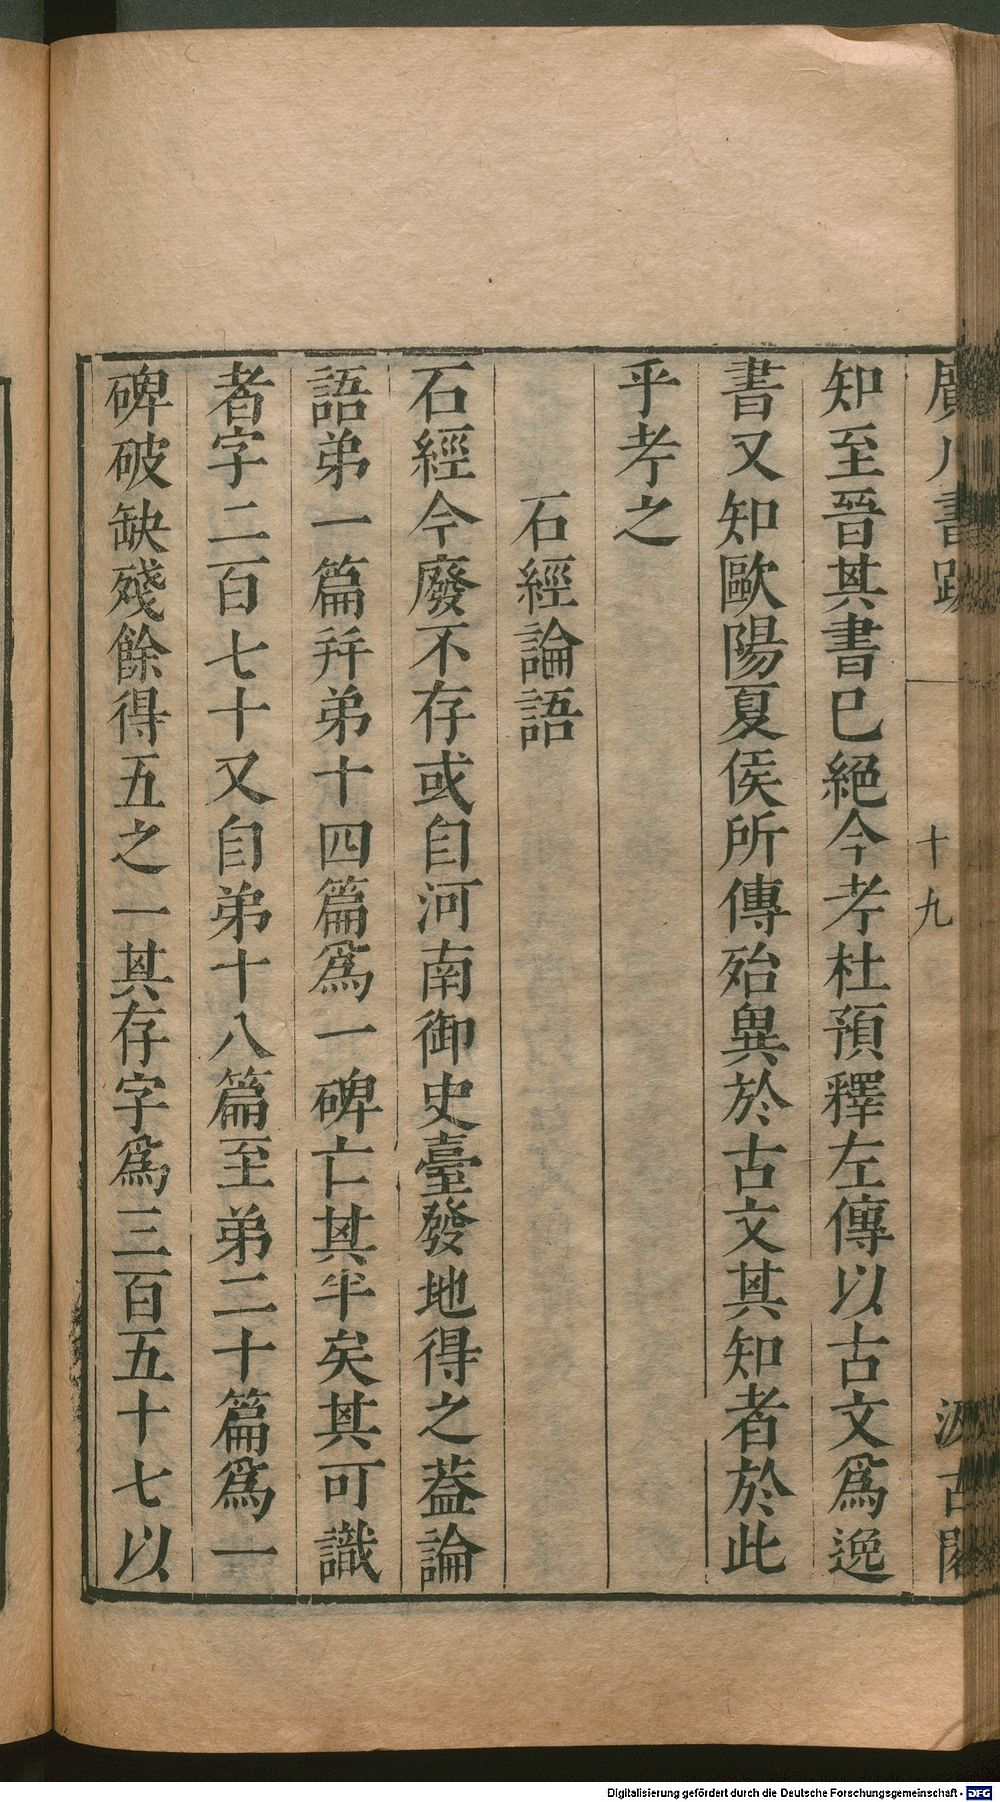 廣川書跋
十九
汲古閣
知至晉其書已絕今考杜預釋左傳以古文爲逸
書又知歐陽夏侯所傳殆異於古文其知者於此
乎考之
石經論語
石經今廢不存或自河南御史臺發地得之葢論
語弟一篇并弟十四篇爲一碑亡其半矣其可識
者字二百七十又自弟十八篇至弟二十篇爲一
碑破缺殘餘得五之一其存字爲三百五十七以
Digitalisierung gefördert durch die Deutsche Forschungsgemeinschaft - DFG